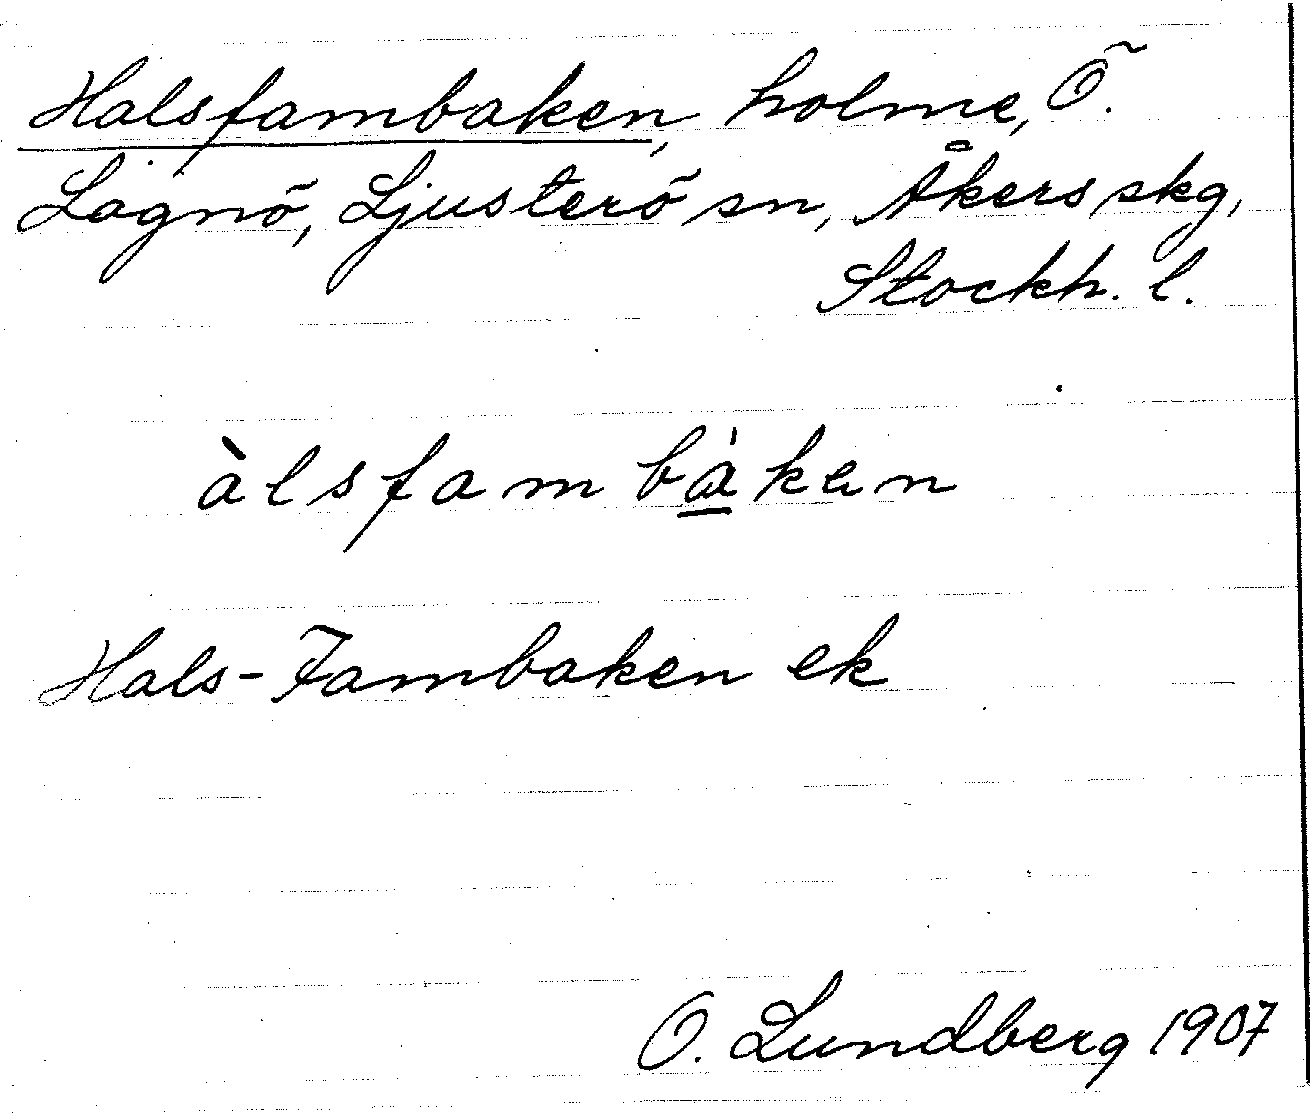 Halsfambaken, holme, Ö.
Lagnö, Ljusterö sn, Åkers skg,
Stockh. l.
àlsfambàkən
Hals-Fambaken ek
O. Lundberg 1907